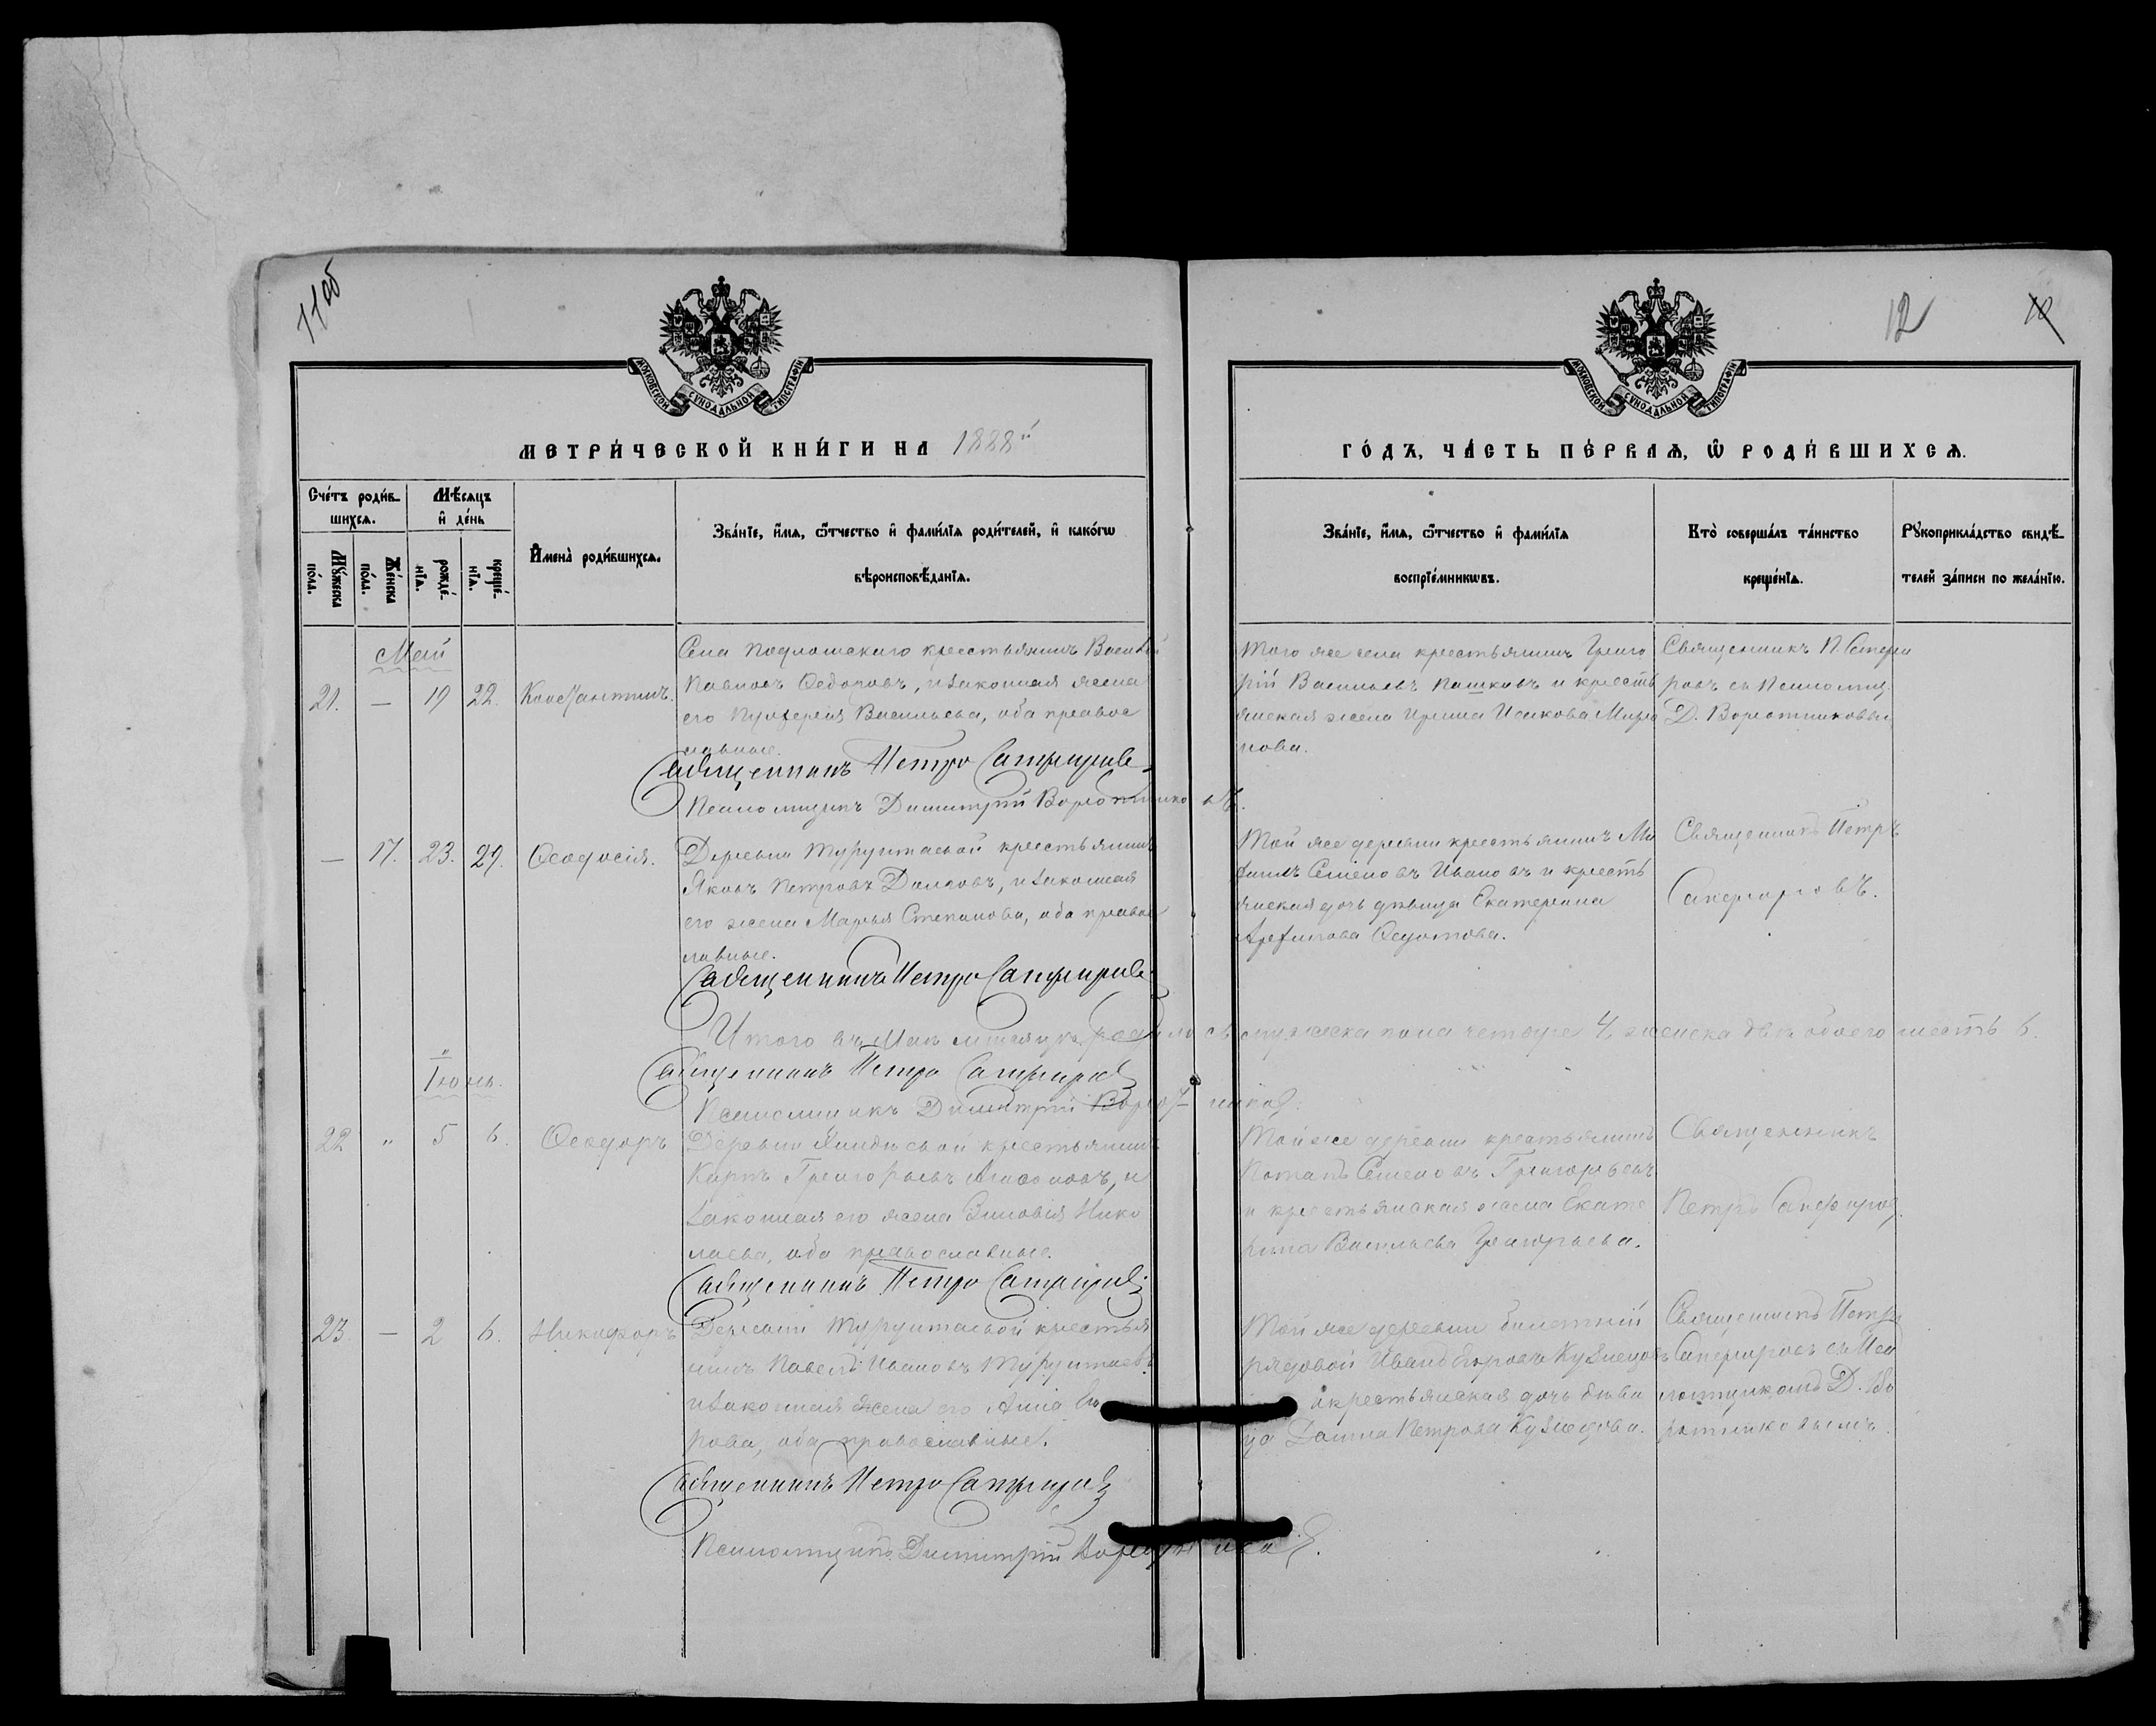 11об
12
10
МОСКОВСКОЙ СѴНОДАЛЬНОЙ ТИПОГРАФІИ
МОСКОВСКОЙ СѴНОДАЛЬНОЙ ТИПОГРАФІИ
МЕТРИ́ЧЕСКОЙ КНИ́ГИ НА 1888й
ГО́ДЪ, ЧА́СТЬ ПЕ́РВАѦ, Ѡ РОДИ́ВШИХСѦ.
Сче́тъ роди́в-
шихсѧ.
Мѣ́сѧцъ
и҆ де́нь
Мꙋ́жеска
по́ла.
Же́нска
по́ла.
рожде́-
нїѧ.
креще́-
нїѧ.
И҆мена̀ роди́вшихсѧ.
Зва́нїе, и҆́мѧ, ѻ҆́тчество и҆ фами́лїѧ роди́телей, и҆ како́гѡ
вѣроисповѣ́данїѧ.
Зва́нїе, и҆́мѧ, ѻ҆́тчество и҆ фами́лїѧ
воспрїе́мникѡвъ.
Кто̀ соверша́лъ та́инство
креще́нїѧ.
Рꙋкоприкла́дство свидѣ́-
телей за́писи по жела́нїю.
Май
21. — 19 22. Константинъ.
Села крестьянинъ Василій
Павловъ Ѳедоровъ, и законная жена
его Васильева, оба правос
лавные.
Священникъ Петръ Сапфировъ
Псаломщикъ Димитрій Воротниковъ.
Того же села крестьянинъ Григо
рій Васильевъ Пашковъ и кресть
янская жена Ирина Исакова Миро
нова.
Священникъ П. Сапфи
ровъ съ Псаломщ.
Д. Воротниковым
— 17. 23. 29. Ѳеодосія.
Деревни Турунтаевой крестьянинъ
Яковъ Петровъ Долговъ, и законная
его жена Марья Степанова, оба правос
лавные.
Священникъ Петръ Сапфировъ
Той же деревни крестьянинъ Ми
хаилъ Семеновъ Ивановъ и кресть
янская дочь дѣвица Екатерина
Ѳедотова.
Священникъ Петръ
Сапфировъ.
Итого въ Маѣ мѣсяцѣ родилось мужеска пола четыре 4, женска два обоего шесть 6.
Священникъ Петръ Сапфировъ
Псаломщикъ Димитрій Воротников
Іюнь.
22 „ 5 6. Ѳеодоръ
Деревни крестьянинъ
Карпъ Григорьевъ и
законная его жена Зиновія Нико
лаева, оба православные.
Священникъ Петръ Сапфировъ
Той же деревни крестьянинъ
Потапъ Семеновъ Григорьевъ
и крестьянская жена Екате
рина Васильева Григорьева.
Священникъ
Петръ Сапфиров.
23. — 2 6. Никифоръ
Деревни Турунтаевой крестья
нинъ Павелъ Ивановъ Турунтаевъ
и законная жена его Анна Его
рова, оба православные.
Священникъ Петръ Сапфировъ
Псаломщикъ Димитрій Воротников.
Той же деревни билетный
рядовой Иванъ Егоровъ Кузнецовъ
и крестьянская дочь дѣви
ца Домна Петрова
Священникъ Петръ
Сапфировъ съ Пса
ломщикомъ Д. Во
ротниковымъ.